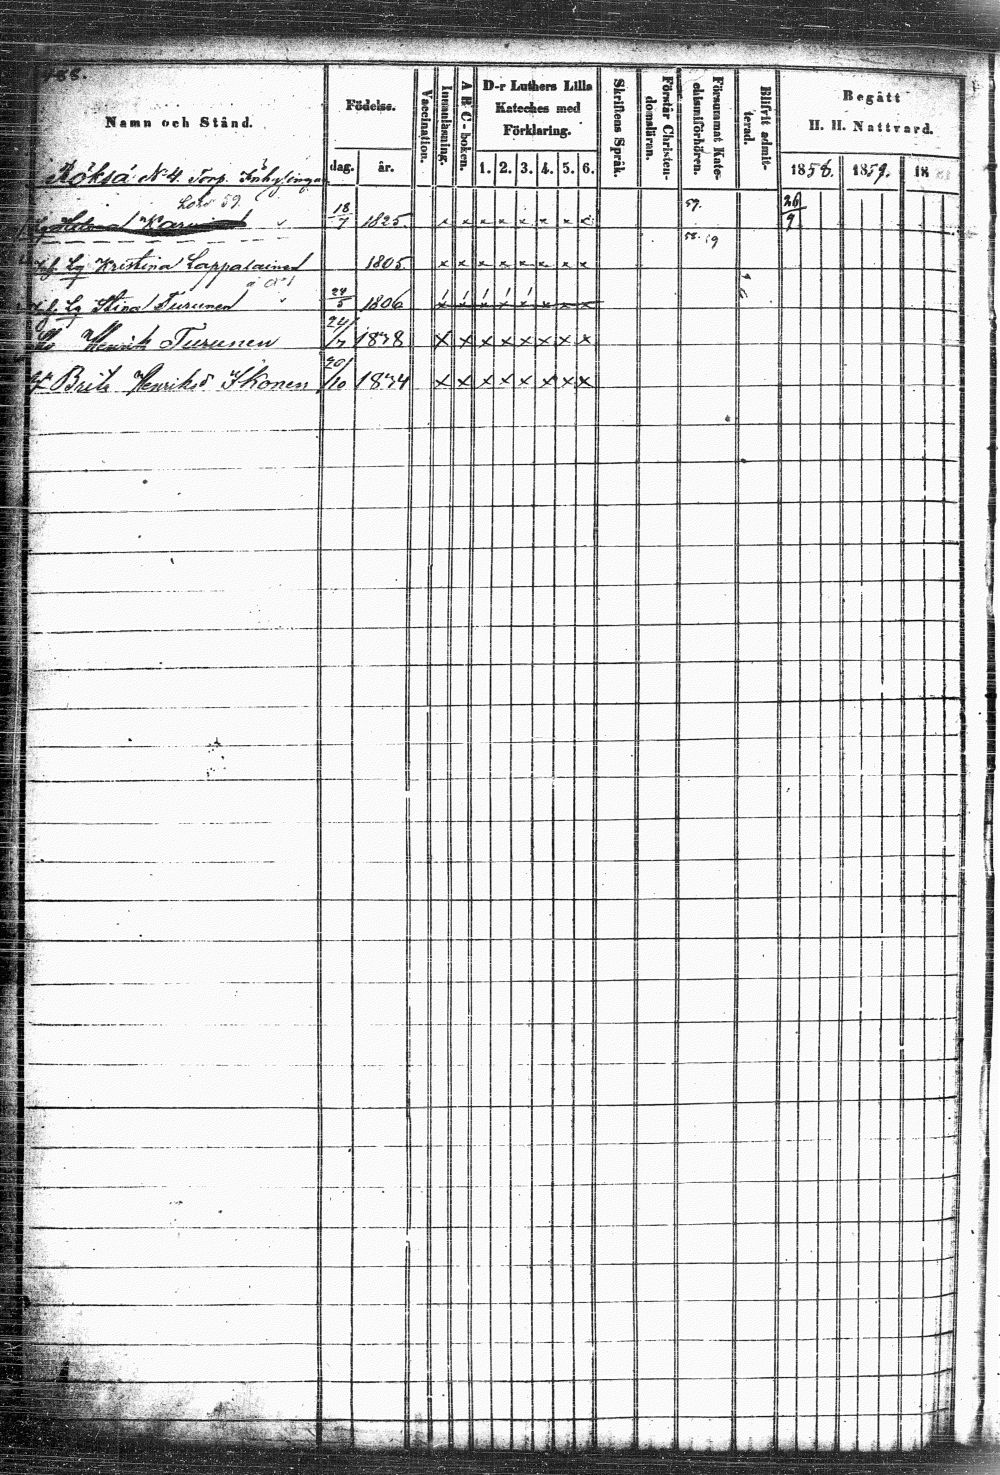 188.
Namn och Stånd.
Födelse.
dag. år.
Vaccination.
Innanläsning.
A B C-boken.
D-r Luthers Lilla
Kateches med
Förklaring.
1. 2. 3. 4. 5. 6.
Skriftens Språk.
Förstår Christen-
domsläran.
Försummat Kate-
chismiförhören.
Blifvit admit-
terad.
Begått
H. H. Nattvard.
1858. 1859. 18
Röksá N 4. Torp. Inhysingar
59.
Helena 18/7 1825. x x x x x x x 59. 26/9
58. 59
Kristina Lappalainen 1805. x x x x x x x x
Stina Turunen 24/5 1806 x x x x x x x x
Henrik Turunen 24/7 1838 x x x x x x x x
Brita Henriksd Ikonen 20/10 1834 x x x x x x x x